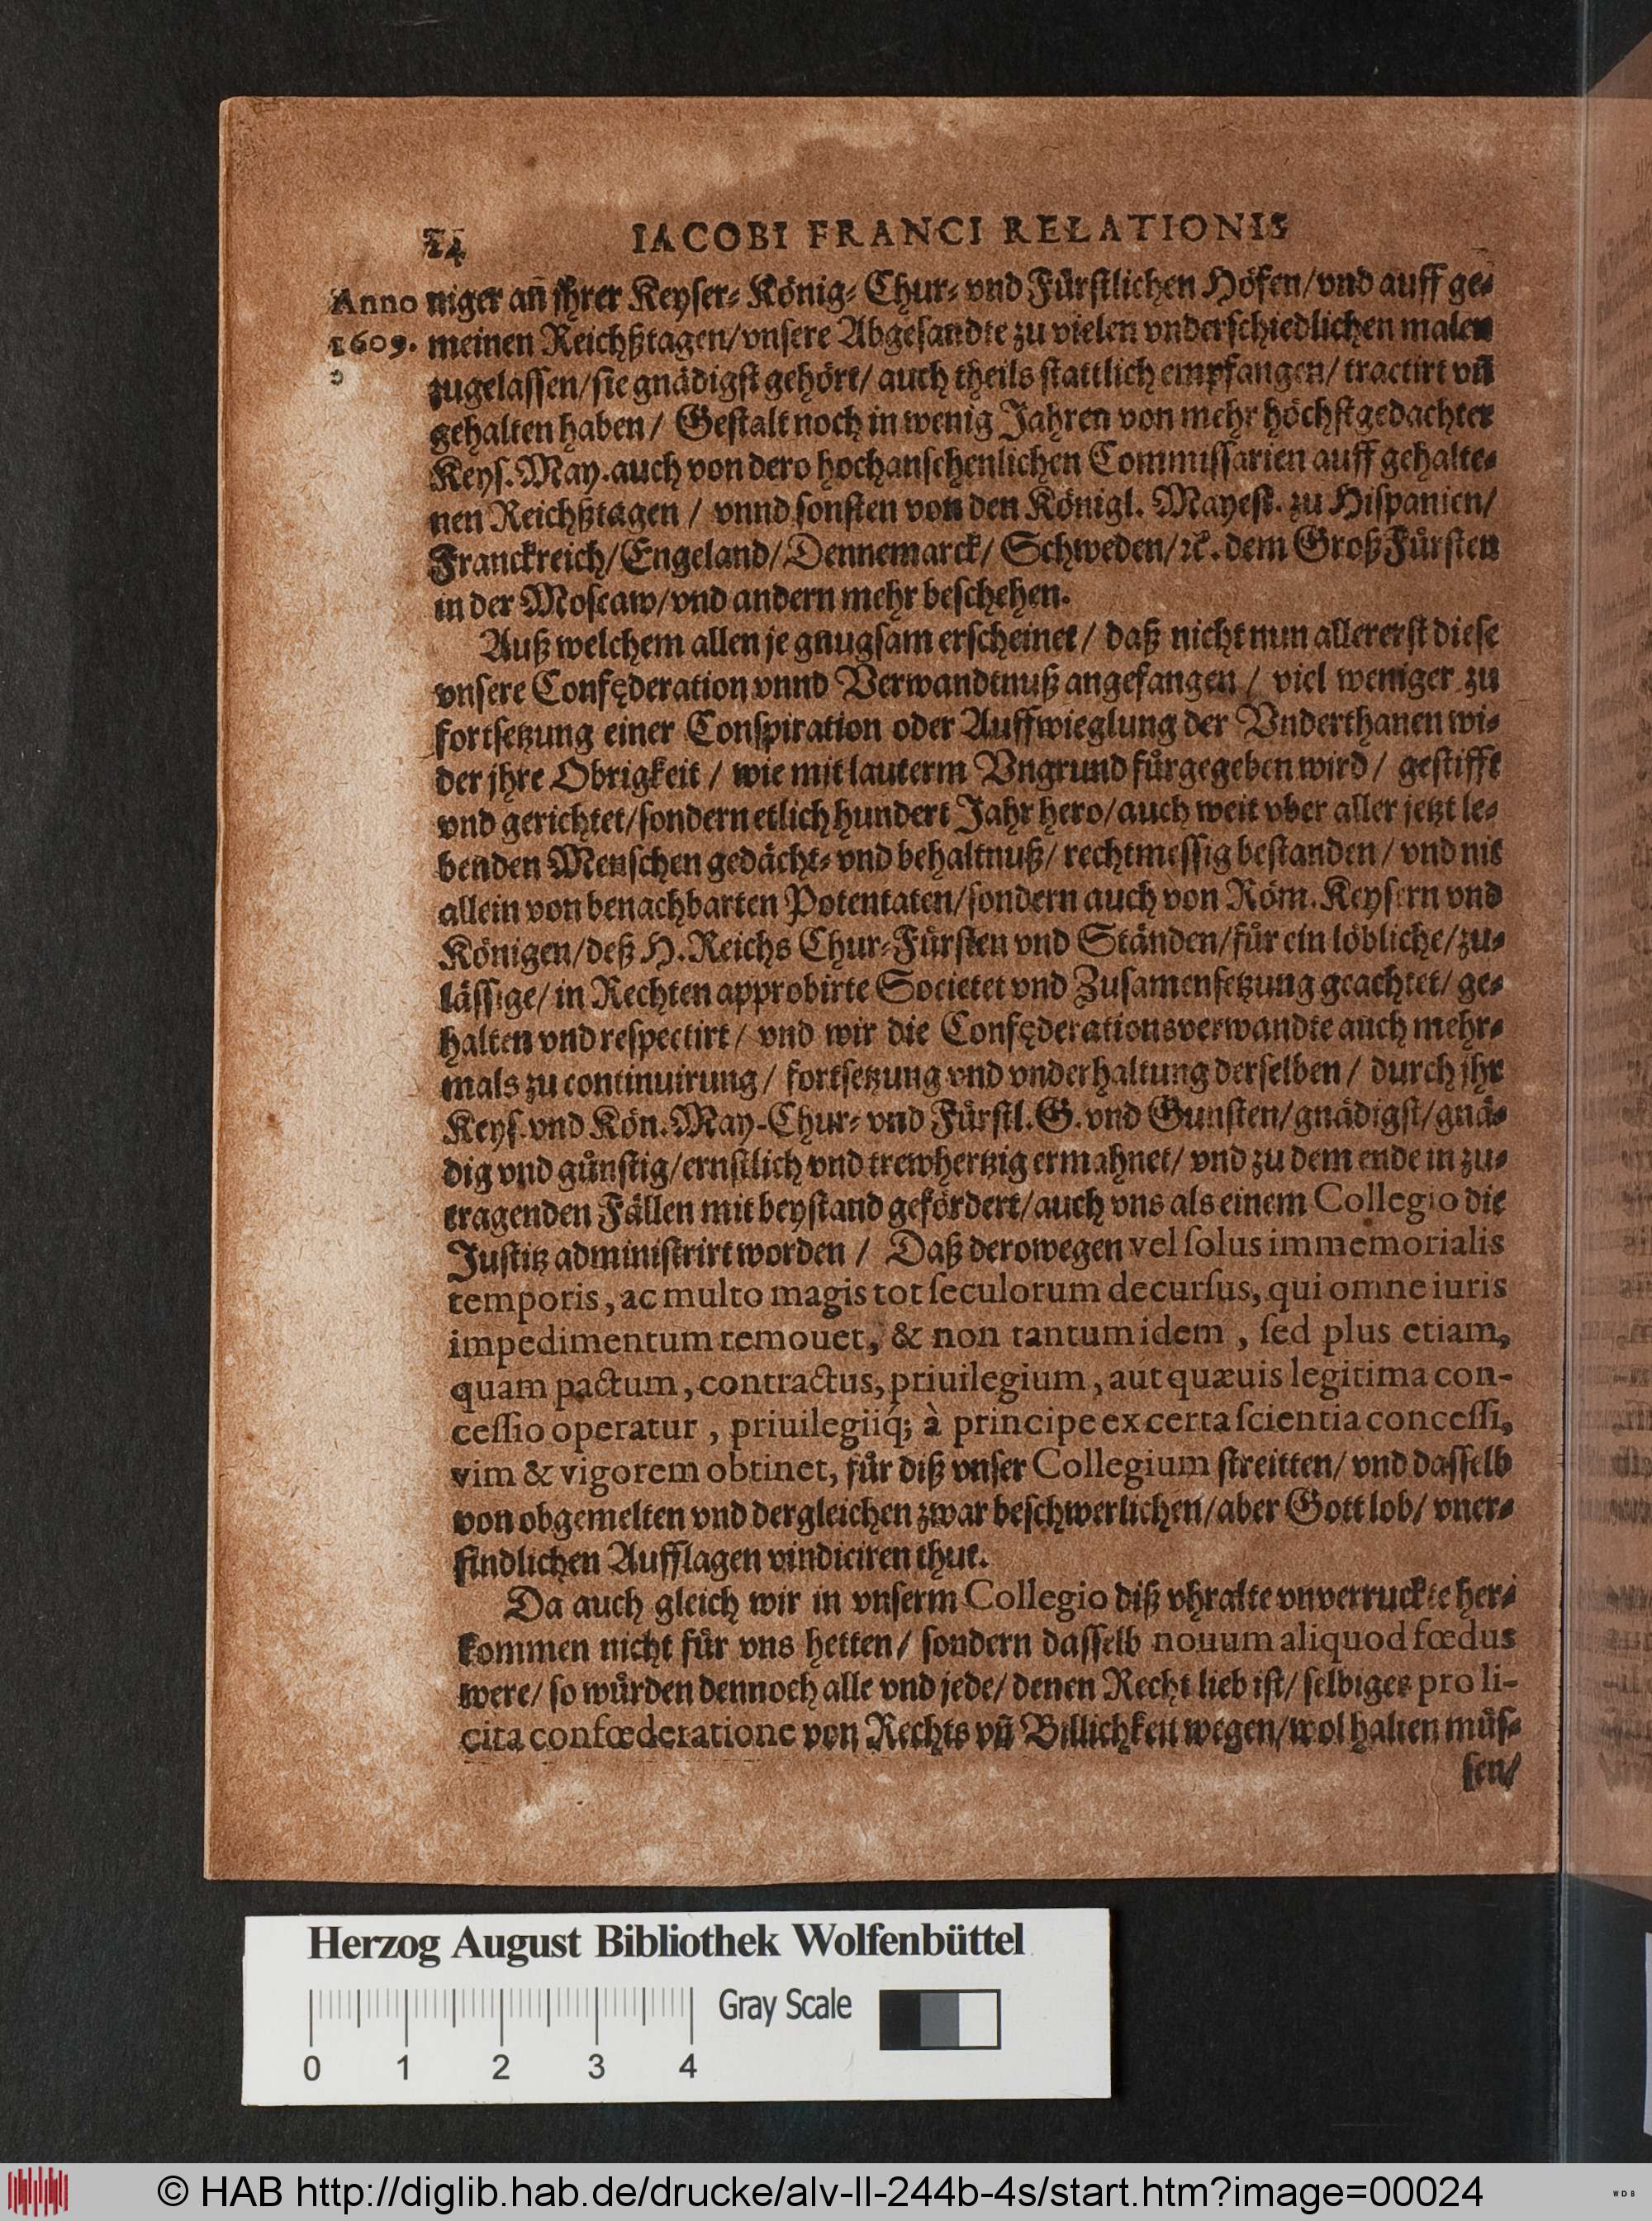 24 IACOBI FRANCI RELATIONIS
Anno niger an̄ jhrer Keyser- König- Chur- vnd Fürstlichen Höfen/vnd auff ge-
1609. meinen Reichßtagen/vnsere Abgesandte zu vielen vnderschiedlichen malen
zugelassen/sie gnädigst gehört/ auch theils stattlich empfangen/ tractirt vn̄
gehalten haben/ Gestalt noch in wenig Jahren von mehr höchstgedachter
Keys. May. auch von dero hochansehenlichen Commissarien auff gehalte-
nen Reichßtagen / vnnd sonsten von den Königl. Mayest. zu Hispanien/
Franckreich/Engeland/Dennemarck/ Schweden/ꝛc. dem GroßFürsten
in der Moscaw/vnd andern mehr beschehen.
Auß welchem allen je gnugsam erscheinet/ daß nicht nun allererst diese
vnsere Confęderation vnnd Verwandtnuß angefangen / viel weniger zu
fortsetzung einer Conspiration oder Auffwieglung der Vnderthanen wi-
der jhre Obrigkeit / wie mit lauterm Vngrund fürgegeben wird / gestifft
vnd gerichtet/sondern etlich hundert Jahr hero/auch weit vber aller jetzt le-
benden Menschen gedächt- vnd behaltnuß/ rechtmessig bestanden/ vnd nit
allein von benachbarten Potentaten/sondern auch von Röm. Keysern vnd
Königen/deß H. Reichs Chur-Fürsten vnd Ständen/für ein löbliche/zu-
lässige/ in Rechten approbirte Societet vnd Zusamensetzung geachtet/ ge-
halten vnd respectirt/ vnd wir die Confęderationsverwandte auch mehr-
mals zu continuirung/ fortsetzung vnd vnderhaltung derselben/ durch jhr
Keys. vnd Kön. May- Chur- vnd Fürstl. G. vnd Gunsten/gnädigst/gnä-
dig vnd günstig/ernstlich vnd trewhertzig ermahnet/ vnd zu dem ende in zu-
tragenden Fällen mit beystand gefördert/auch vns als einem Collegio die
Justitz administrirt worden / Daß derowegen vel solus immemorialis
temporis, ac multo magis tot seculorum decursus, qui omne iuris
impedimentum remouet, & non tantum idem , sed plus etiam,
quam pactum, contractus, priuilegium, aut quæuis legitima con-
cessio operatur , priuilegiiq́; à principe ex certa scientia concessi,
vim & vigorem obtinet, für diß vnser Collegium streitten/ vnd dasselb
von obgemelten vnd dergleichen zwar beschwerlichen/aber Gott lob/ vner-
findlichen Aufflagen vindiciren thut.
Da auch gleich wir in vnserm Collegio diß vhralte vnverruckte her-
kommen nicht für vns hetten/ sondern dasselb nouum aliquod fœdus
were/ so würden dennoch alle vnd jede/ denen Recht lieb ist/ selbiges pro li-
cita confœderatione von Rechts vn̄ Billichkeit wegen/wol halten müs-
sen/
Herzog August Bibliothek Wolfenbüttel
Gray Scale
0 1 2 3 4
© HAB http://diglib.hab.de/drucke/alv-ll-244b-4s/start.htm?image=00024
WDB